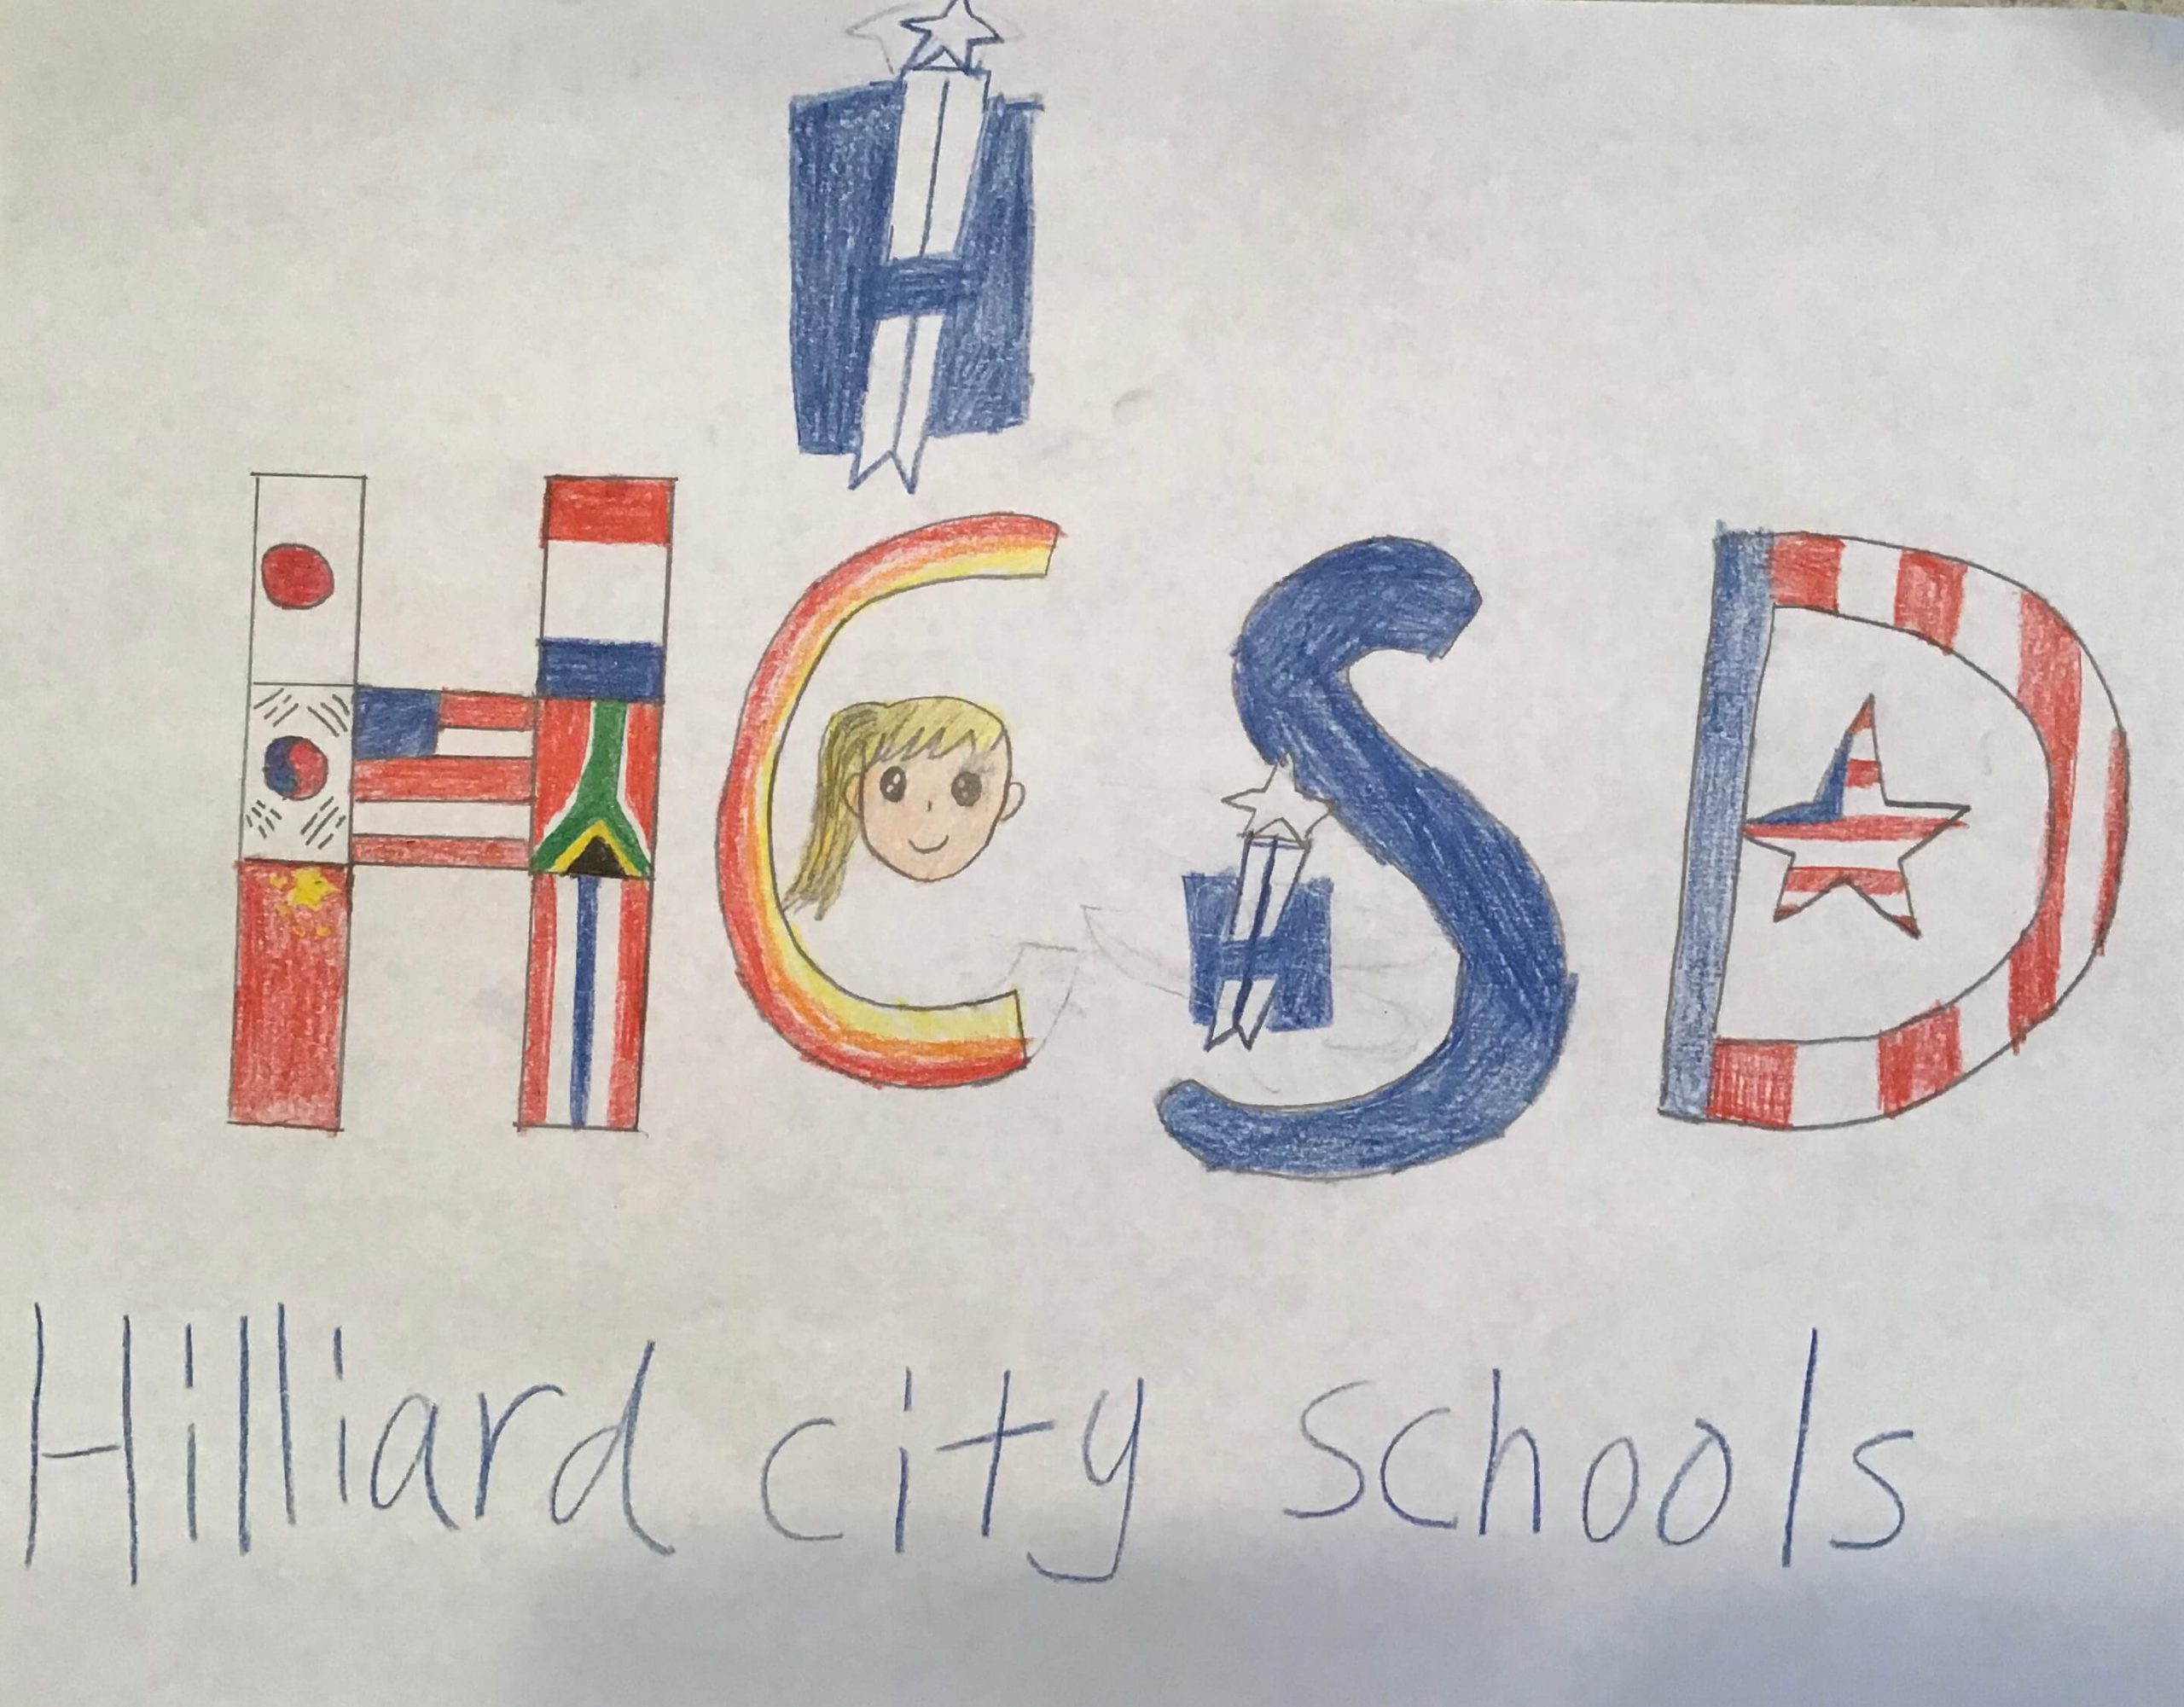 H
HCSD
H
Hilliard city schools